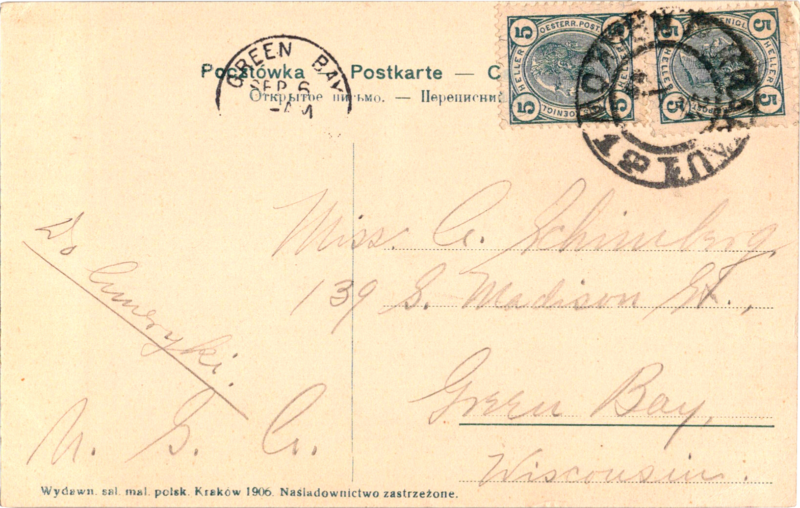 Pocztówka Postkarte — C
Открытое письмо. — Переписни
GREEN BAY
SEP 6
-AM
5 OESTERR. POST 5
HELLER HELLER
5 5
5 5
HELLER HELLER
5 5
Miss. A. Schimberg
139 S. Madison St.,
Green Bay,
Wisconsin.
Do Ameryki.
U. S. A.
Wydawn. sal. mal. polsk. Kraków 1906. Naśladownictwo zastrzeżone.